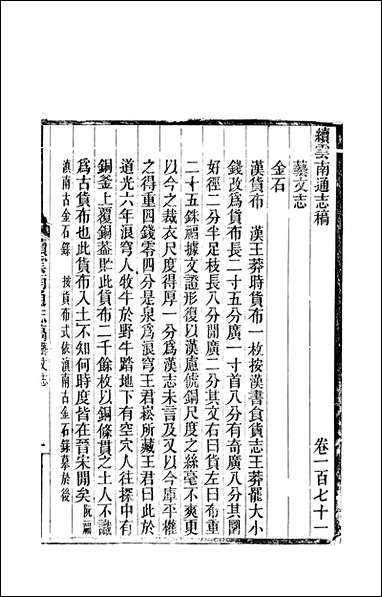 續雲南通志稿 卷一百七十一
藝文志
金石
漢貨布 漢王莽時貨布一枚按漢書食貨志王莽罷大小
錢改爲貨布長二寸五分廣一寸首長八分有奇廣八分其圜
好徑二分半足枝長八分間廣二分其文右曰貨左曰布重
二十五銖福據文證形復以漢慮俿銅尺度之絲毫不爽更
以今之裁衣尺度得厚一分爲漢志未言及又以今庫平權
之得重四錢零四分是泉爲浪穹王君崧所藏王君曰此於
道光六年浪穹人牧牛於野牛踏地下有空穴人往探中有
銅釜上覆銅葢貯此貨布二千餘枚以銅條貫之土人不識
爲古貨布也此貨布入土不知何時度皆在晉宋閒矣阮福
滇南古金石錄 按貨布式依滇南古金石錄摹於後
續雲南通志稿 藝文志 一